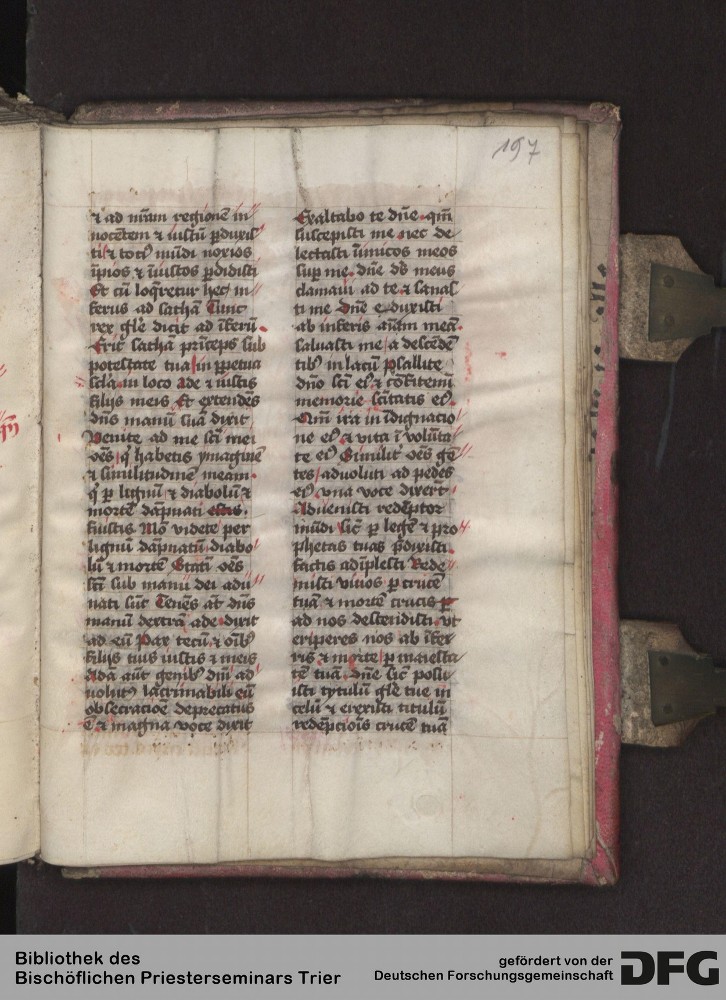 197
⁊ ad nr̄am regionē in
nocētem ⁊ iustū ꝑduxis
ti ⁊ totꝰ mūdi noxios
īpios ⁊ īiustos ꝑdidisti
Et cū loq̄retur hec in
ferus ad sathā Tunc
rex gl̄e dicit ad īferū
Erit sathā prīceps sub
potestate tua in ꝑpetua
scl̄a in loco Ade ⁊ iustis
filijs meis Et extendēs
dn̄s manū suā dixit
Venite ad me sc̄i mei
oēs q̄ habetis ymaginē
⁊ similitudinē meam
q̄ ꝑ lignū ⁊ diabolū ⁊
mortē dāpnati
fuistis Mō videte per
lignū dāpnatū diabo
lū ⁊ mortē Statī oēs
sc̄i sub manu dei adu
nati sūt Tenēs āt dn̄s
manū dextrā ade dixit
ad eū Pax tecū ⁊ oībꝰ
filijs tuis iustis ⁊ meis
Adā aūt genibꝰ dn̄i ad
uolutꝰ lacrimabili eū
obsecracōe deprecatus
ē ⁊ magna voce dixit
Exaltabo te dn̄e qm̄
suscepisti me nec de
lectasti īimicos meos
suꝑ me dn̄e ds̄ meus
clamaui ad te ⁊ sanas
ti me Dn̄e eduxisti
ab inferis aīam meā
saluasti me a descēdē
tibꝰ in lacū Psallite
dn̄o sc̄i eiꝰ ⁊ cōfitemi
memorie sc̄itatis eiꝰ
Qm̄ ira in īdignacio
ne eiꝰ ⁊ vita ī volūta
te eiꝰ Similit̄ oēs sc̄i
aduoluti ad pedes
eiꝰ vna voce dixerūt
Aduenisti redēptor
mūdi sic̄ ꝑ legē ⁊ pro
phetas tuas p̄dixisti
factis adīplesti Rede
misti viuos ꝑ crucē
tuā ⁊ mortē crucis
ad nos descendisti vt
eriperes nos ab īfer
ris ⁊ morte ꝑ maiesta
tē tuā Dn̄e sic̄ posu
isti tytulū gl̄e tue in
celū ⁊ erexisti titulū
redēpcōis crucē tuā
Bibliothek des
Bischöflichen Priesterseminars Trier
gefördert von der
Deutschen Forschungsgemeinschaft
DFG